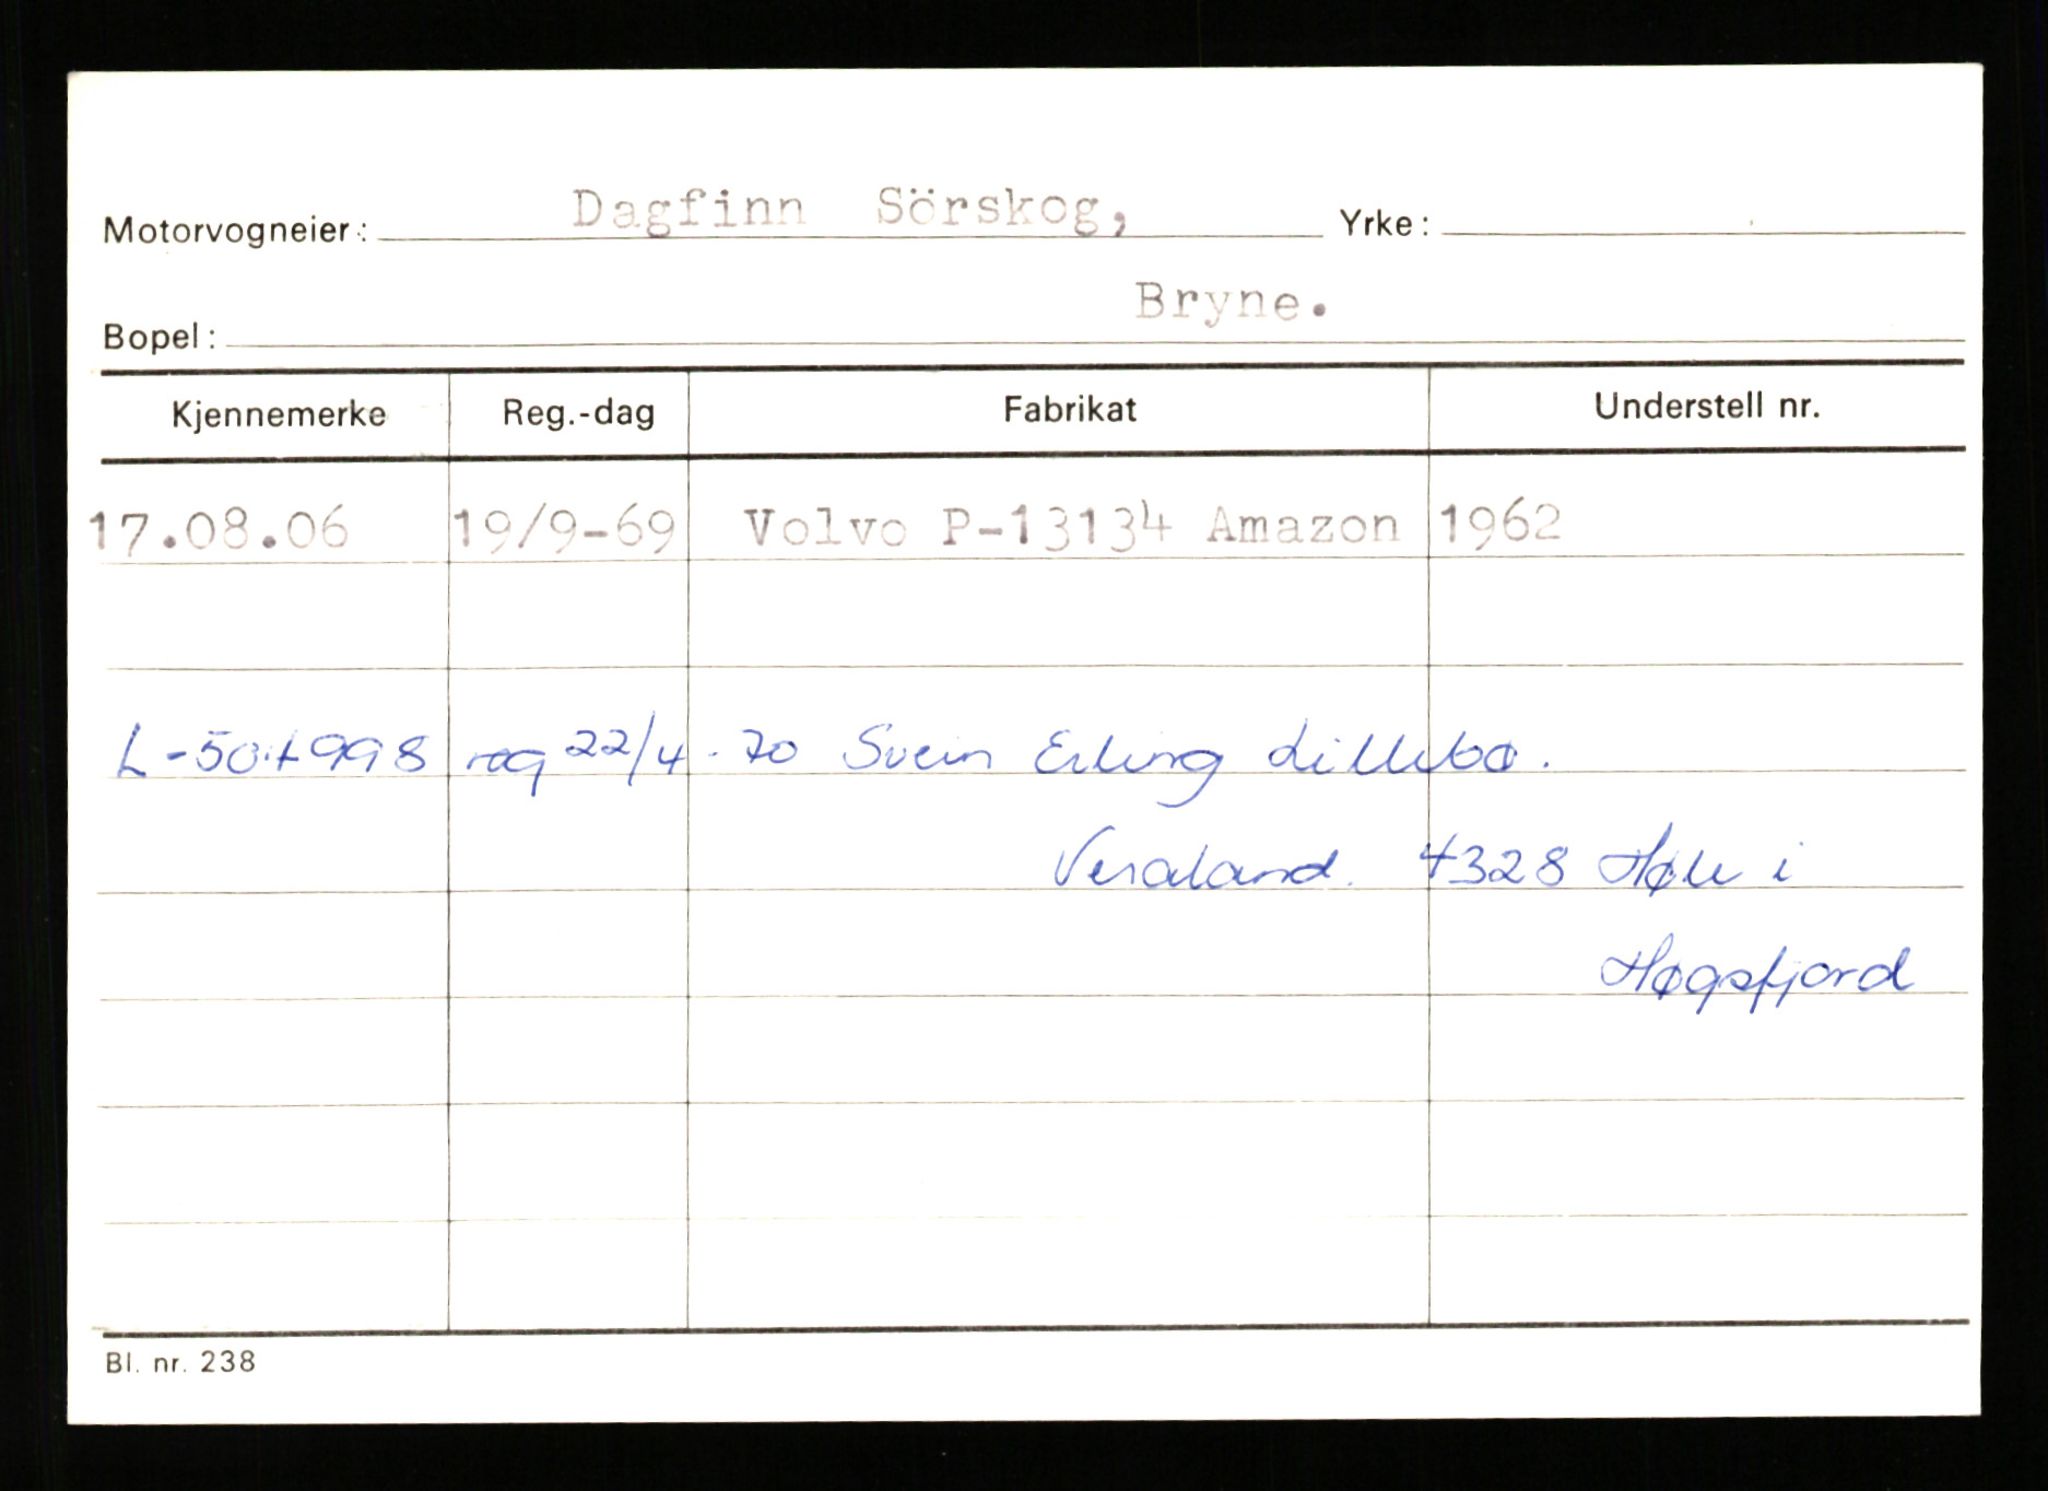 Motorvogneier: Dagfinn Sörskog, Yrke:
Bopel: Bryne.
Kjennemerke Reg.-dag Fabrikat Understell nr.
17.08.06 19/9-69 Volvo P-13134 Amazon 1962
reg 22/4-70 Svein Erling Lillebø.
4328 Høle i
Høgsfjord
Bl. nr. 238